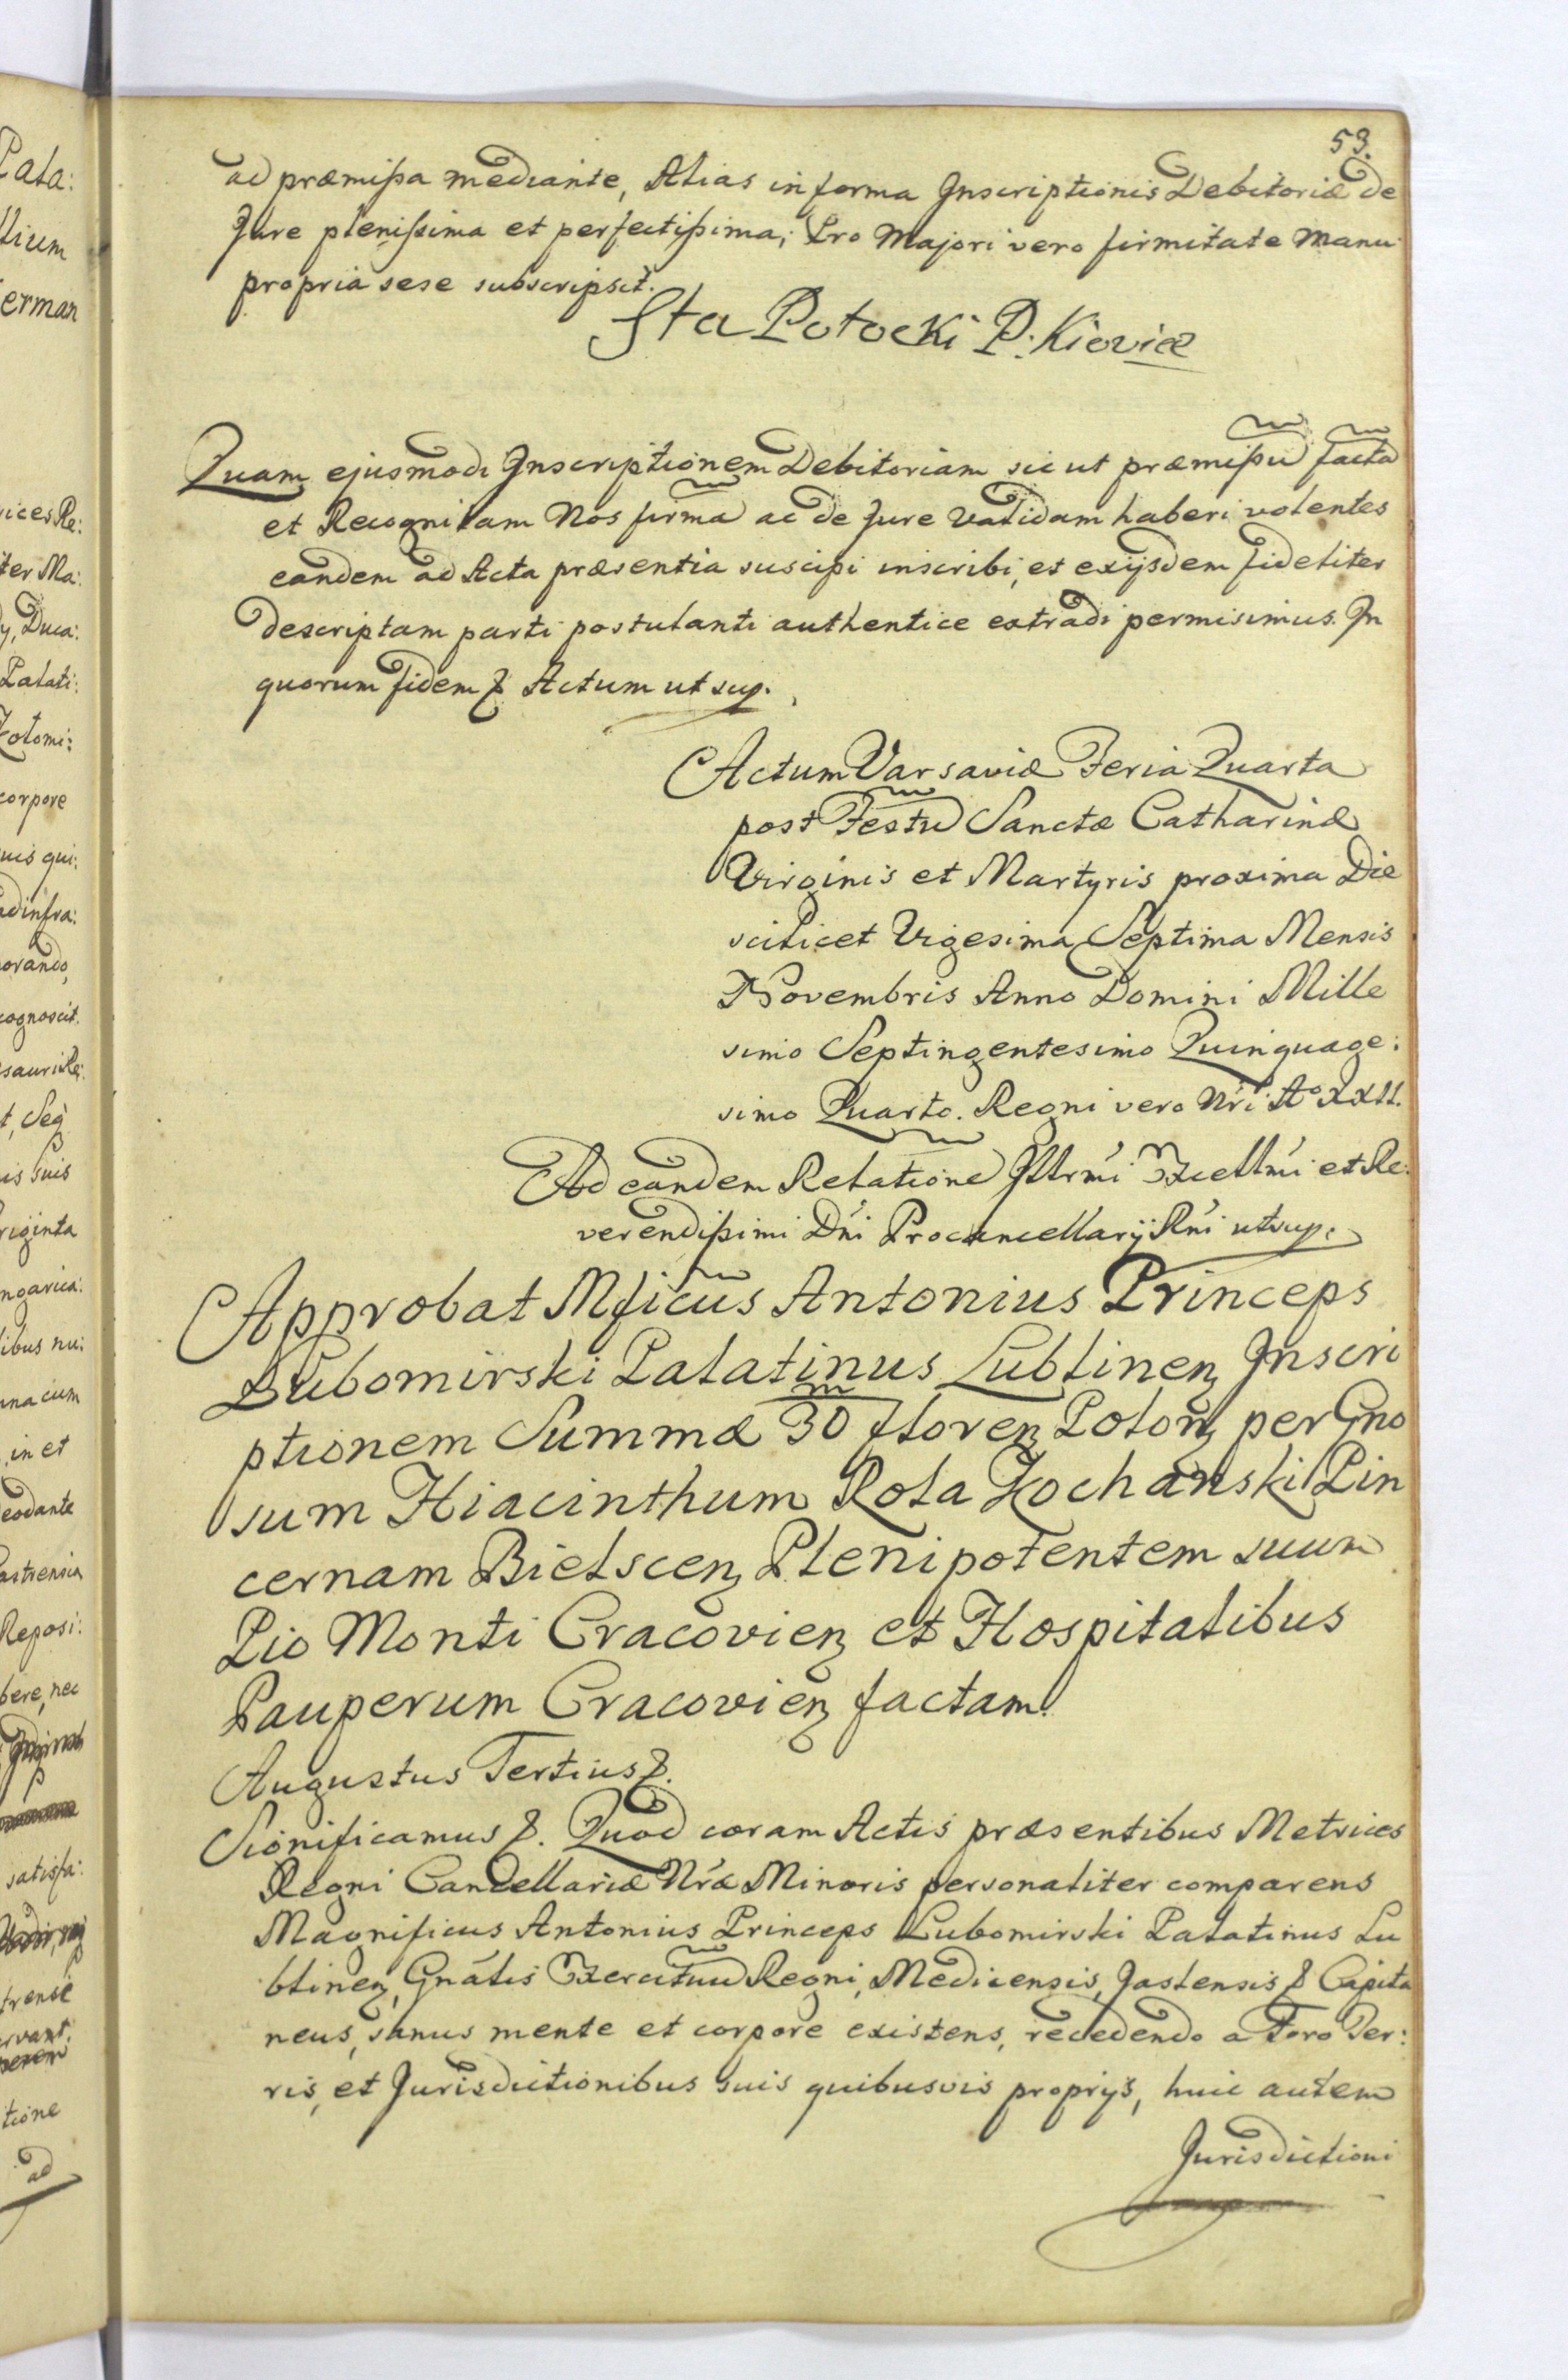 53.
ad præmissa mediante, Alias in forma Inscriptionis Debitoriæ de
Jure plenissima et perfectissima; Pro Majori vero firmitate Manu
propria sese subscripsit.
Sta Potocki P: Kioviæ
Quam ejusmodi Inscriptionem Debitoriam sicut præmissu facta
et Recognitam Nos firma ac de Jure validam haberi volentes
eandem ad Acta præsentia suscipi inscribi, et exijsdem fideliter
descriptam parti postulanti authentice extradi permisimus. In
quorum fidem & Actum ut sup.
Actum Varsaviæ Feria Quarta
post Festu Sanctæ Catharinæ
Virginis et Martyris proxima Die
scilicet Vigesima Septima Mensis
Novembris Anno Domini Mille
simo Septingentesimo Quinquage:
simo Quarto. Regni vero Nri A° XXII.
Ad eandem Relatione Illrmi Excellmi et Re:
verendissimi Dni Procancellarij Rni ut sup.
Approbat Mficus Antonius Princeps
Lubomirski Palatinus Lublinen Inscri
ptionem Summæ 30 floren Polon per Gno
sum Hiacinthum Rola Kochanski Pin
cernam Bielscen Plenipotentem suum
Pio Monti Cracovien et Hospitalibus
Pauperum Cracovien factam.
Augustus Tertius &.
Significamus &. Quod coram Actis præsentibus Metrices
Regni Cancellariæ Nræ Minoris personaliter comparens
Magnificus Antonius Princeps Lubomirski Palatinus Lu
blinen, Gnalis Exercituu Regni, Medicensis, Jaslensis & Capita
neus, sanus mente et corpore existens, recedendo a Foro Ter:
ris, et Jurisdictionibus suis quibusvis proprijs, huic autem
Jurisdictioni